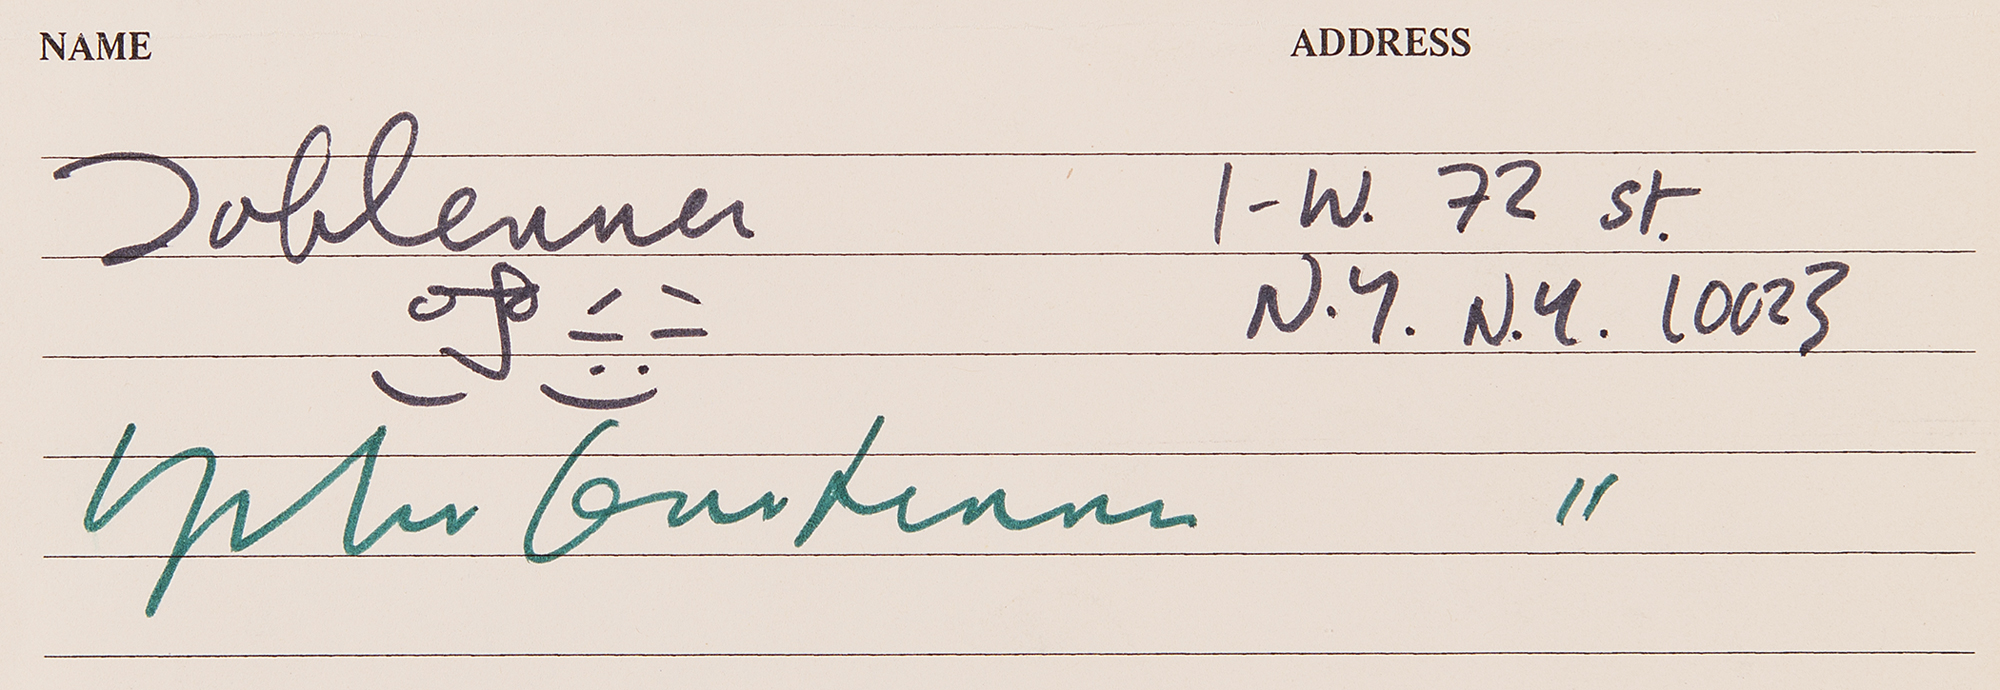 NAME ADDRESS
John Lennon 1-W. 72 st.
N.Y. N.Y. 10023
Yoko Ono Lennon "